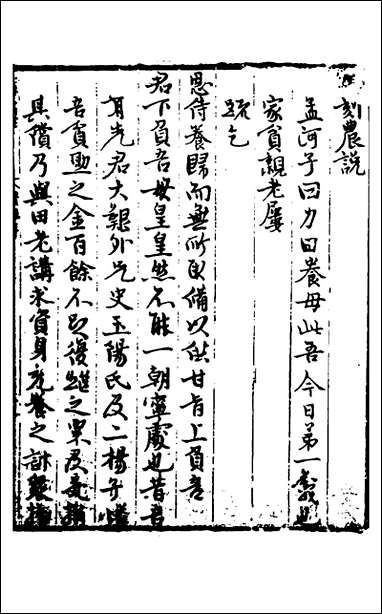 刻農説
孟河子曰力田養母此吾今日第一義也
家貧親老屢
疏乞
恩侍養歸而無所取備以供甘旨上負吾
君下負吾母皇皇然不能一朝寧處也昔吾
有先君大艱外兄史玉陽氏及二楊子憐
吾貧助之金百餘不足復繼之粟及是謝
具償乃與田老講求資身充養之計